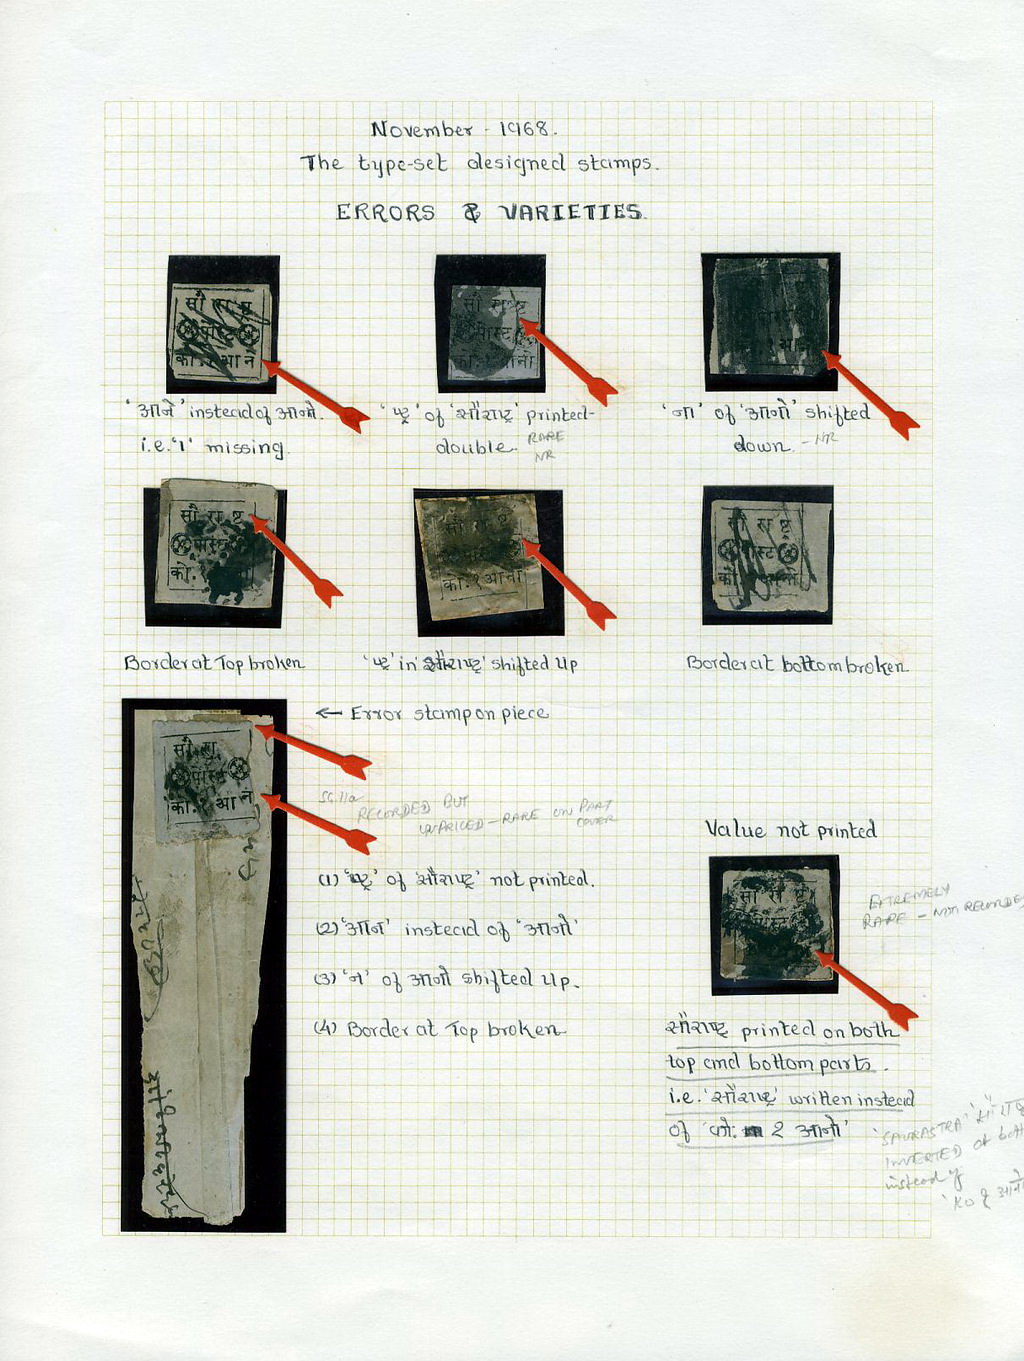 November - 1968.
The type-set designed stamps.
ERRORS & VARIETIES.
सौ राष्ट्र
पोस्ट
को. १ आ न
सौ राष्ट्र
पोस्ट
को. १ आनो
'आने' instead of आनो.
i.e. 'ा' missing.
'ष्ट्र' of 'सौराष्ट्र' printed-
double. RARE
NR
'ना' of 'आनो' shifted
down. - NR
सौ रा ष्ट्र
पोस्ट
को.
को. १ आनो
सौ रा ष्ट्र
Border at Top broken
'ष्ट्र' in 'सौराष्ट्र' shifted up
Border at bottom broken
← Error stamp on piece
सौ रा
पोस्ट
को. १ आ न
SG.11a
RECORDED BUT
UNPRICED - RARE ON PART
COVER
(1) 'ष्ट्र' of 'सौराष्ट्र' not printed.
(2) 'आन' instead of 'आनो'
(3) 'न' of आनो shifted up.
(4) Border at Top broken
Value not printed
सौ रा ष्ट्र
EXTREMELY
RARE - NOT RECORDED
सौराष्ट्र printed on both
top and bottom parts.
i.e. 'सौराष्ट्र' written instead
of 'को. १ आनो'
'SAURASTRA'
INVERTED at
instead of